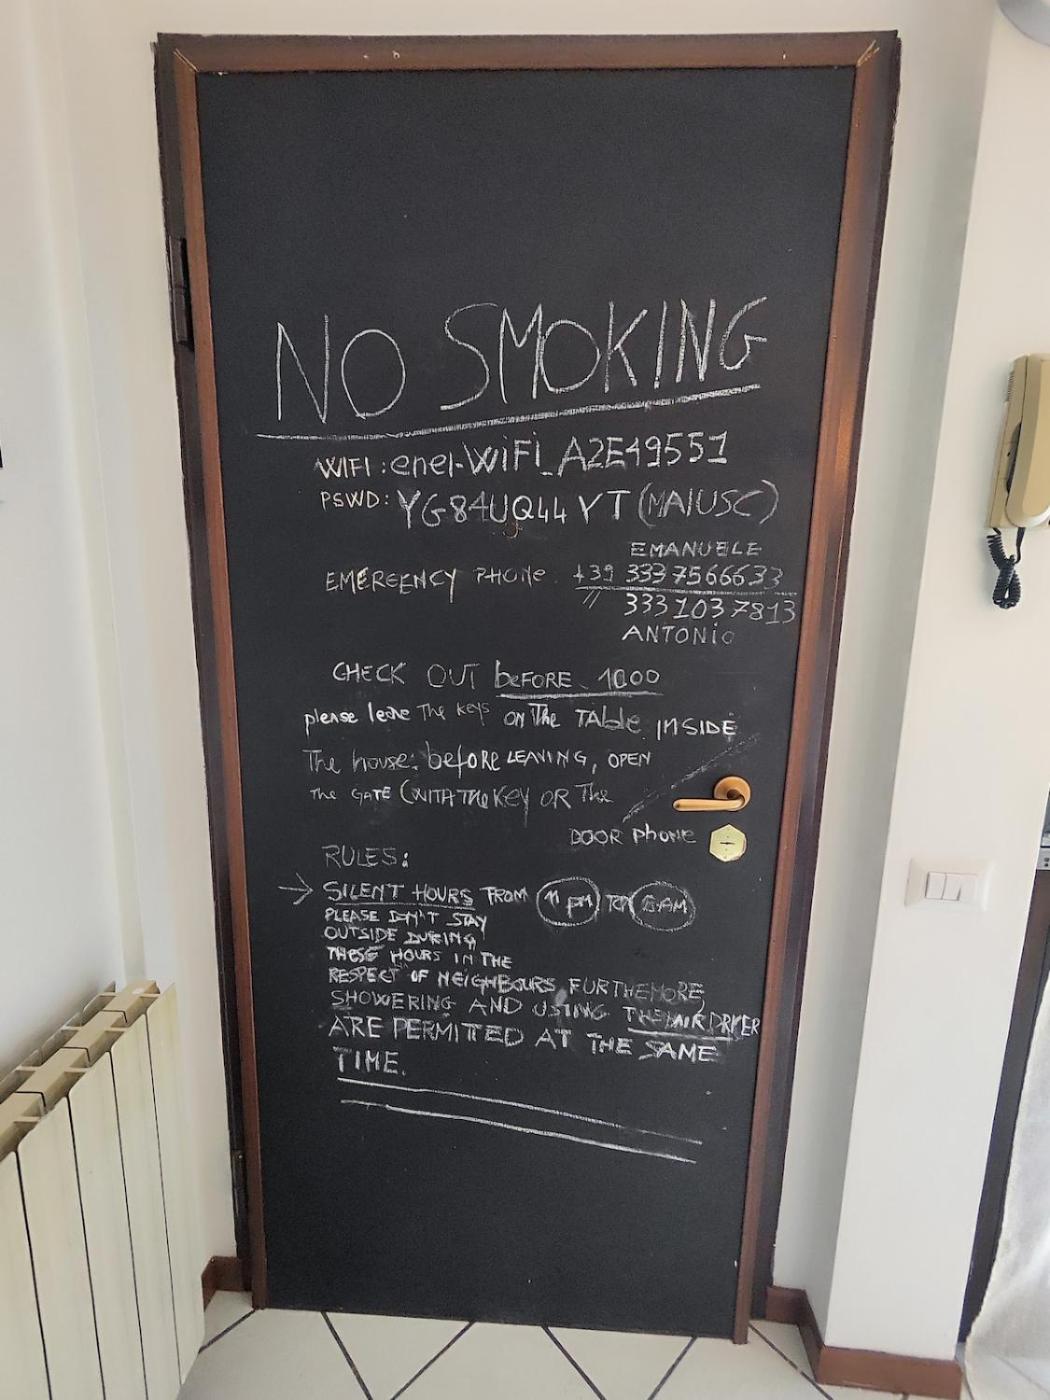 NO SMOKING
WIFI: enel-WiFi_A2E49551
PSWD: YG84UQ44YT (MAIUSC)
EMANUELE
EMERGENCY PHONE +39 3337566633
// 333 103 7813
ANTONIO
CHECK OUT beFORE 1000
please leave The keys on The TAble INSIDE
The house. before LEAVING, OPEN
The GATE (WITH The Key OR The
DOOR Phone
RULES:
→ SILENT HOURS FROM 11 pm TO AM
PLEASE DON'T STAY
OUTSIDE DURING
THESE HOURS IN THE
RESPECT OF NEIGHBOURS FURTHEMORE,
SHOWERING AND USING THE HAIR DRYER
ARE PERMITED AT THE SAME
TIME.